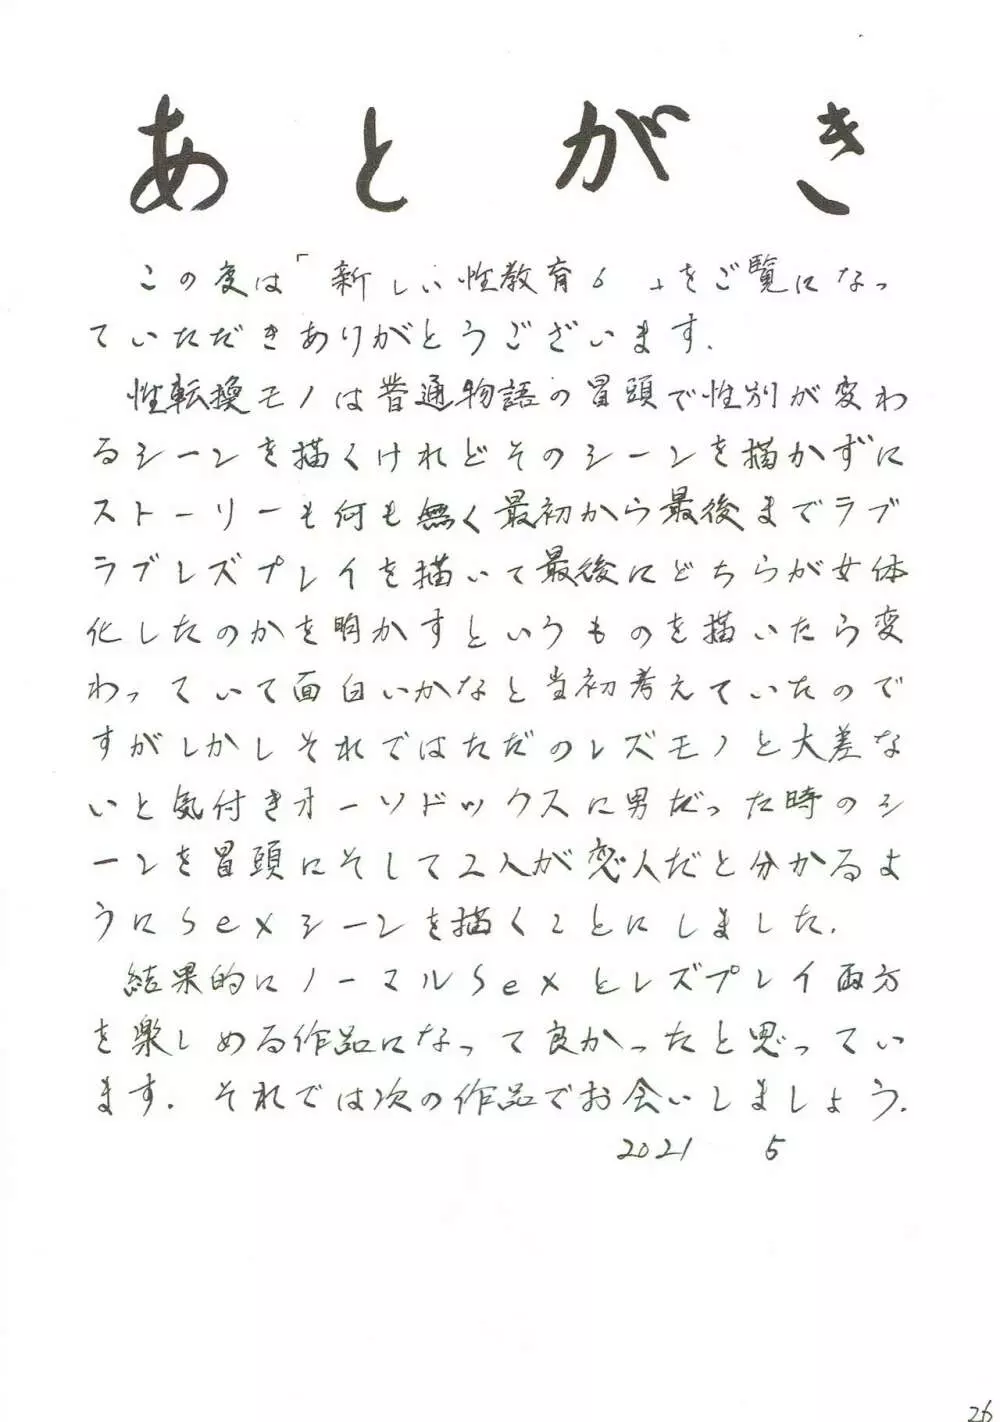 あとがき
この度は「新しい性教育6」をご覧になっ
ていただきありがとうございます.
性転換モノは普通物語の冒頭で性別が変わ
るシーンを描くけれどそのシーンを描かずに
ストーリーも何も無く最初から最後までラブ
ラブレズプレイを描いて最後にどちらが女体
化したのかを明かすというものを描いたら変
わっていて面白いかなと当初考えていたので
すがしかしそれではただのレズモノと大差な
いと気付きオーソドックスに男だった時のシ
ーンを冒頭にそして2人が恋人だと分かるよ
うにSexシーンを描くことにしました.
結果的にノーマルSexとレズプレイ両方
を楽しめる作品になって良かったと思ってい
ます.それでは次の作品でお会いしましょう.
2021 5
26